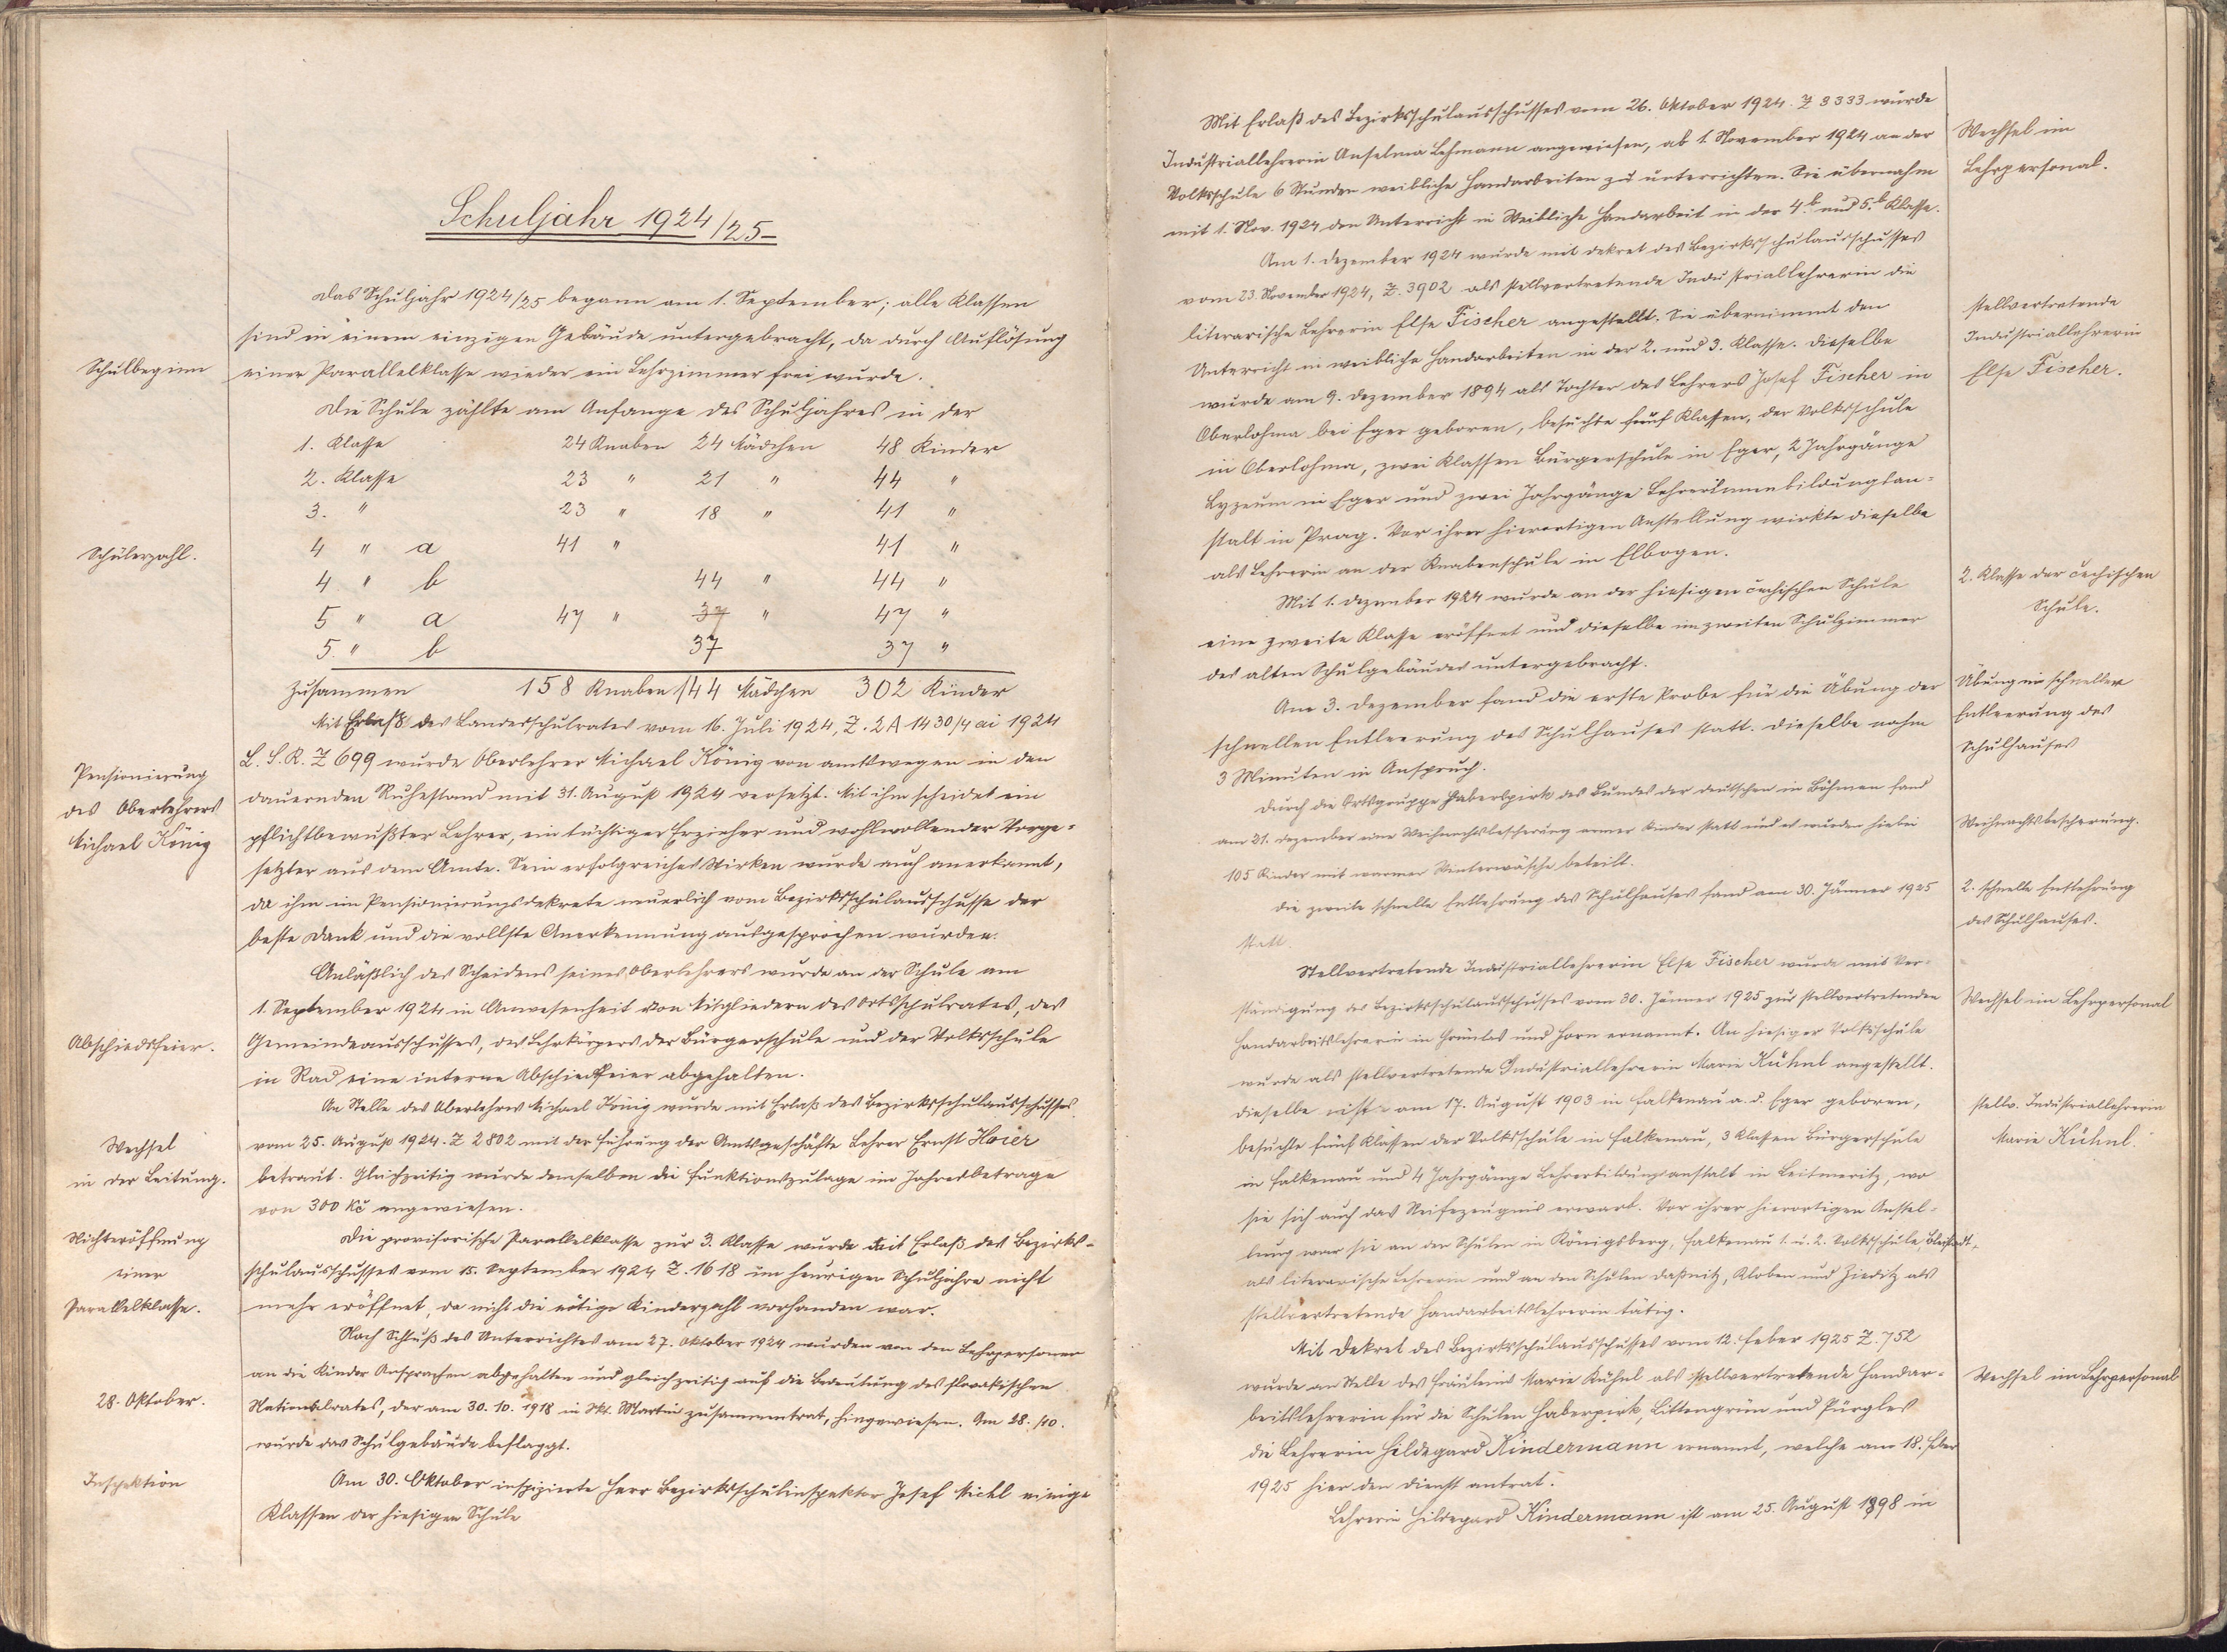 Schuljahr 1924/25
Das Schuljahr 1924/25 begann am 1. September; alle Klassen
sind in einem einzigen Gebäude untergebracht, da durch Auflösung
Schulbeginn
einer Parallelklasse wieder ein Lehrzimmer frei wurde.
Die Schule zählte am Anfange des Schuljahres in der
1. Klasse 24 Knaben 24 Mädchen 48 Kinder
2. Klasse 23 " 21 " 44 "
3. " 23 " 18 " 41 "
Schülerzahl.
4 " a 41 " 41 "
4. " b 44 " 44 "
5 " a 47 " 37 " 47 "
5. " b 37 37 "
Zusammen 158 Knaben 144 Mädchen 302 Kinder
Mit Erlaß des Landesschulrates vom 16. Juli 1924, Z. 2A 1430/4 ai 1924
L. S. R. Z 699 wurde Oberlehrer Michael König von amtswegen in den
Pensionierung
des Oberlehrers
Michael König
dauernden Ruhestand mit 31. August 1924 versetzt. Mit ihm scheidet ein
pflichtbewußter Lehrer, ein tüchtiger Erzieher und wohlwollender Vorge=
setzter aus dem Amte. Sein erfolgreiches Wirken wurde auch anerkannt,
da ihm im Pensionierungsdekrete neuerlich vom Bezirksschulausschusse der
beste Dank und die vollste Anerkennung ausgesprochen wurden.
Anläßlich des Scheidens seines Oberlehrers wurde an der Schule am
1. September 1924 in Anwesenheit von Mitgliedern des Ortsschulrates, des
Abschiedsfeier.
Gemeindeausschusses, des Lehrkörpers der Bürgerschule und der Volksschule
in Rad eine interne Abschiedsfeier abgehalten.
An Stelle des Oberlehrers Michael König wurde mit Erlaß des Bezirksschulausschusses
Wechsel
in der Leitung.
vom 25. August 1924. Z 2802 mit der Führung der Amtsgeschäfte Lehrer Ernst Hoier
betraut. Gleichzeitig wurde demselben die Funktionszulage im Jahresbetrage
von 300 Kč angewiesen.
Nichteröffnung
einer
Parallelklasse.
Die provisorische Parallelklasse zur 3. Klasse wurde mit Erlaß des Bezirks=
schulausschusses vom 15. September 1924 Z. 1618 im heurigen Schuljahre nicht
mehr eröffnet, da nicht die nötige Kinderzahl vorhanden war.
Nach Schluß des Unterrichtes am 27. Oktober 1924 wurden von den Lehrpersonen
an die Kinder Ansprachen abgehalten und gleichzeitig auf die Bedeutung des slovakischen
28. Oktober.
Nationalrates, der am 30. 10. 1918 in Skt. Martin zusammentrat, hingewiesen. Am 28./10.
wurde das Schulgebäude beflaggt.
Inspektion
Am 30. Oktober inspizierte Herr Bezirksschulinspektor Josef Michl einige
Klassen der hiesigen Schule
Mit Erlaß des Bezirksschulausschusses vom 26. Oktober 1924. Z 3333 wurde
Wechsel im
Lehrpersonal.
Industriallehrerin Anselma Lehmann angewiesen, ab 1. November 1924 an der
Volksschule 6 Stunden weibliche Handarbeiten zu unterrichten. Sie übernahm
mit 1. Nov. 1924 den Unterricht in Weibliche Handarbeit in der 4.b und 5.b Klasse.
Am 1. Dezember 1924 wurde mit Dekret des Bezirksschulausschusses
vom 23. November 1924, Z. 3902 als stellvertretende Industriallehrerin die
stellvertretende
Industriallehrerin
Else Fischer.
literarische Lehrerin Else Fischer angestellt. Sie übernimmt den
Unterricht in weibliche Handarbeiten in der 2. und 3. Klasse. Dieselbe
wurde am 9. Dezember 1894 als Tochter des Lehrers Josef Fischer in
Oberlohma bei Eger geboren, besuchte fünf Klassen, der Volksschule
in Oberlohma, zwei Klassen Bürgerschule in Eger, 2 Jahrgänge
Lyzeum in Eger und zwei Jahrgänge Lehrerinnenbildungsan=
stalt in Prag. Vor ihrer hierortigen Anstellung wirkte dieselbe
als Lehrerin an der Knabenschule in Elbogen.
2. Klasse der čechischen
Schule.
Mit 1. Dezember 1924 wurde an der hiesigen čechischen Schule
eine zweite Klasse eröffnet und dieselbe im zweiten Schulzimmer
des alten Schulgebäudes untergebracht.
Übung in schneller
Entleerung des
Schulhauses
Am 3. Dezember fand die erste Probe für die Übung der
schnellen Entleerung des Schulhauses statt. Dieselbe nahm
3 Minuten in Anspruch.
Durch die Ortsgruppe Haberspirk des Bundes der Deutschen in Böhmen fand
am 21. Dezember eine Weihnachtsbescherung armer Kinder statt und es wurden hiebei
Weihnachtsbescherung.
105 Kinder mit warmer Winterwäsche beteilt.
Die zweite schnelle Entlehrung des Schulhauses fand am 30. Jänner 1925
statt.
2. schnelle Entlehrung
des Schulhauses.
Stellvertretende Industriallehrerin Else Fischer wurde mit Ver=
ständigung des Bezirksschulausschusses vom 30. Jänner 1925 zur stellvertretenden
Wechsel im Lehrpersonal
Handarbeitslehrerin in Grünlas und Horn ernannt. An hiesiger Volksschule
wurde als stellvertretende Industriallehrerin Marie Kühnl angestellt.
Dieselbe ist am 17. August 1903 in Falkenau a. d. Eger geboren,
stellv. Industriallehrerin
Marie Kühnl.
besuchte fünf Klassen der Volksschule in Falkenau, 3 Klassen Bürgerschule
in Falkenau und 4 Jahrgänge Lehrerbildungsanstalt in Leitmeritz, wo
sie sich auch das Reifezeugnis erwarb. Vor ihrer hierortigen Anstel=
lung war sie an den Schulen in Königsberg, Falkenau 1. u. 2. Volksschule Bleistadt,
als literarische Lehrerin und an den Schulen Daßnitz, Kloben und Zieditz als
stellvertretende Handarbeitslehrerin tätig.
Mit Dekret des Bezirksschulausschusses vom 12. Feber 1925 Z. 752
wurde an Stelle des Fräuleins Marie Kühnl als stellvertretende Handar=
Wechsel im Lehrpersonal
beitslehrerin für die Schulen Haberspirk, Littengrün und Pürgles
die Lehrerin Hildegard Kindermann ernannt, welche am 18. Feber
1925 hier den Dienst antrat.
Lehrerin Hildegard Kindermann ist am 25. August 1898 in